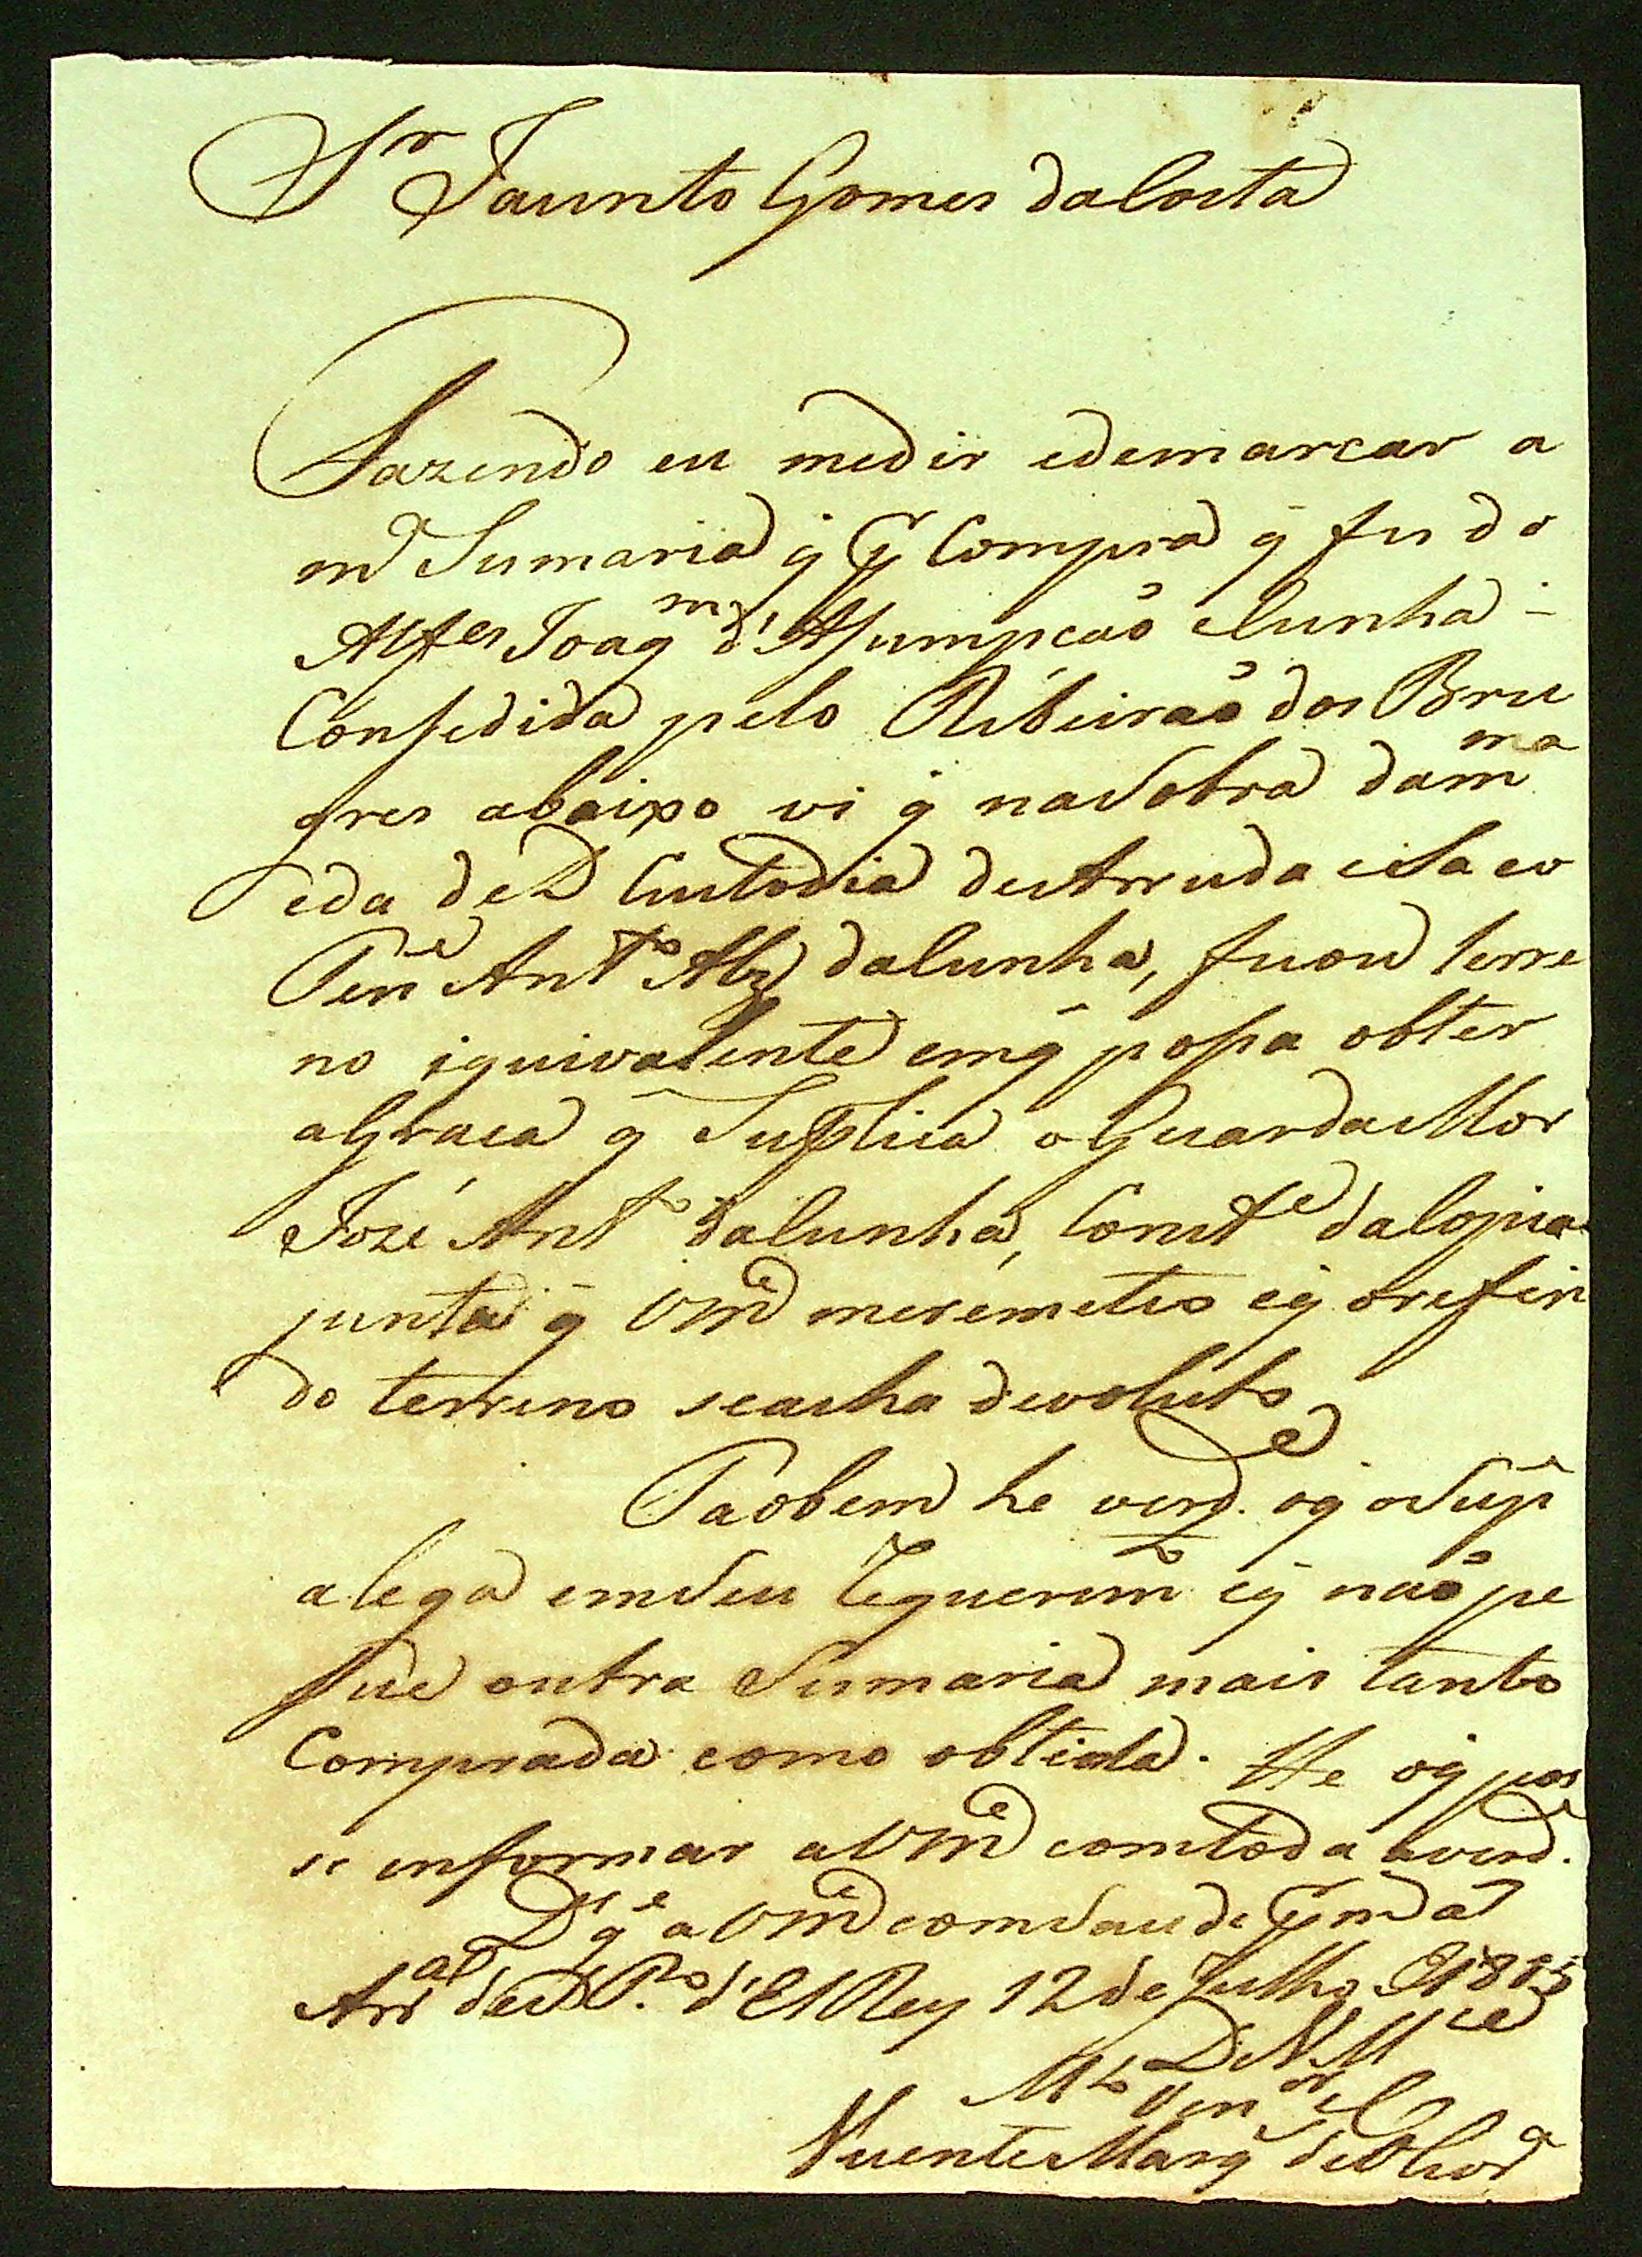 Sr Jacinto Gomes daCosta
Fazendo eu medir edemarcar a
ma Sismaria q̃ pr Compra q̃ fis do
Alfes Joaqm d'Asumpcaõ eCunha
Consedida pelo Ribeiraõ dos Bru
gres abaixo vi q̃ naSobra dam ma
eda deD Custodia deArruda eSa eo
Tene Anto Alz daCunha, ficou terre
no iquivalente emq̃ posa obter
aGraca q̃ Suplica oGuardaMor
José Anto daCunha, Conste daCopia
junta q̃ Vmce meremeteo eq̃ oreferi
do terreno seacha devoluto
Taobem he verde oq̃ oSupe
alega emSeu Requerimto eq̃ naõ pe
sue outra Sismaria mais tanto
Comprada como obtida. He oq̃ pos
so enformar aVmce comtoda averde
Ds ge aVmce comSaude pr ms as
Arral deS. Po d'ElRey 12 de Julho 1815
De Vmce
Mto Venor C
VicenteMarq̃